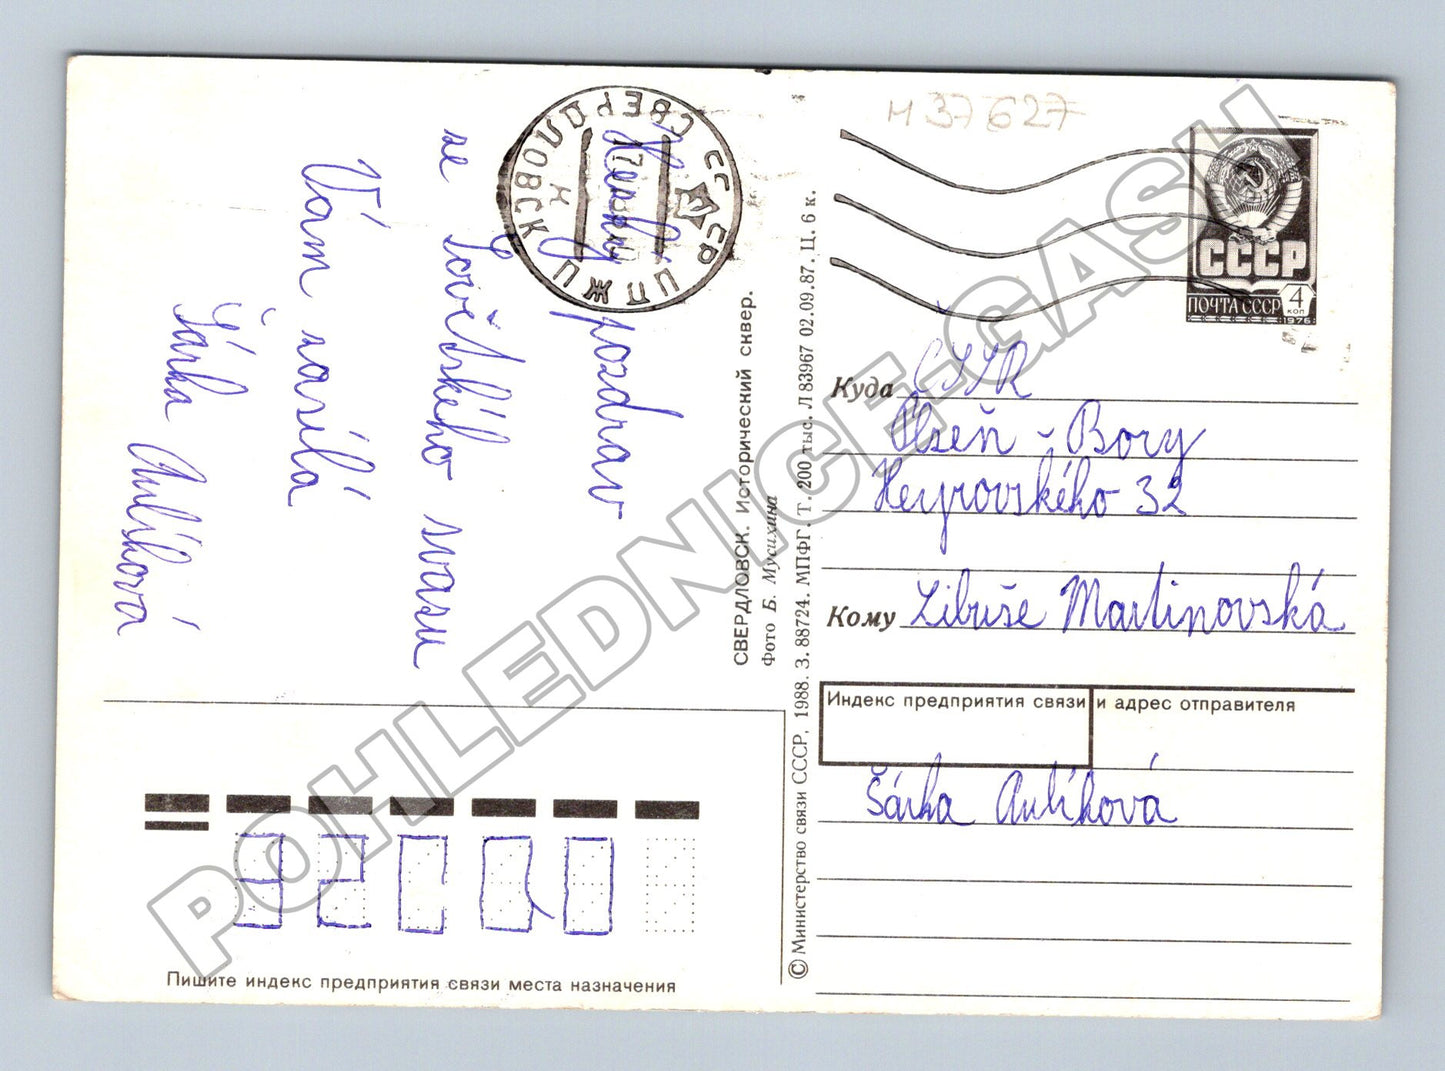 м 37627
СССР
ПОЧТА СССР
4
коп
1976
СВЕРДЛОВСК
ЦПЖД
СССР
К
pozdrav
ze Sovětského svazu
Vám zasílá
Šárka Aulíková
СВЕРДЛОВСК. Исторический сквер.
Фото Б. Мусихина
© Министерство связи СССР, 1988. З. 88724. МПФГ. Т. 200 тыс. Л 83967 02.09.87. Ц. 6 к.
Куда ČSSR
Plzeň - Bory
Heyrovského 32
Кому Libuše Martinovská
Индекс предприятия связи и адрес отправителя
Šárka Aulíková
Пишите индекс предприятия связи места назначения
POHLEDNICE-GASH